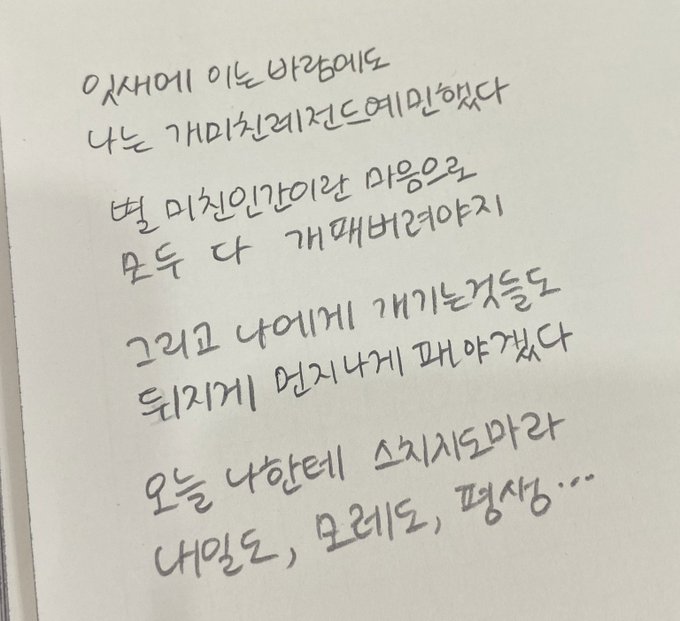 잇새에 이는 바람에도
나는 개미친레전드예민했다
별 미친인간이란 마음으로
모두 다 개패버려야지
그리고 나에게 개기는것들도
뒤지게 먼지나게 패야겠다
오늘 나한테 스치지도마라
내일도, 모레도, 평생...